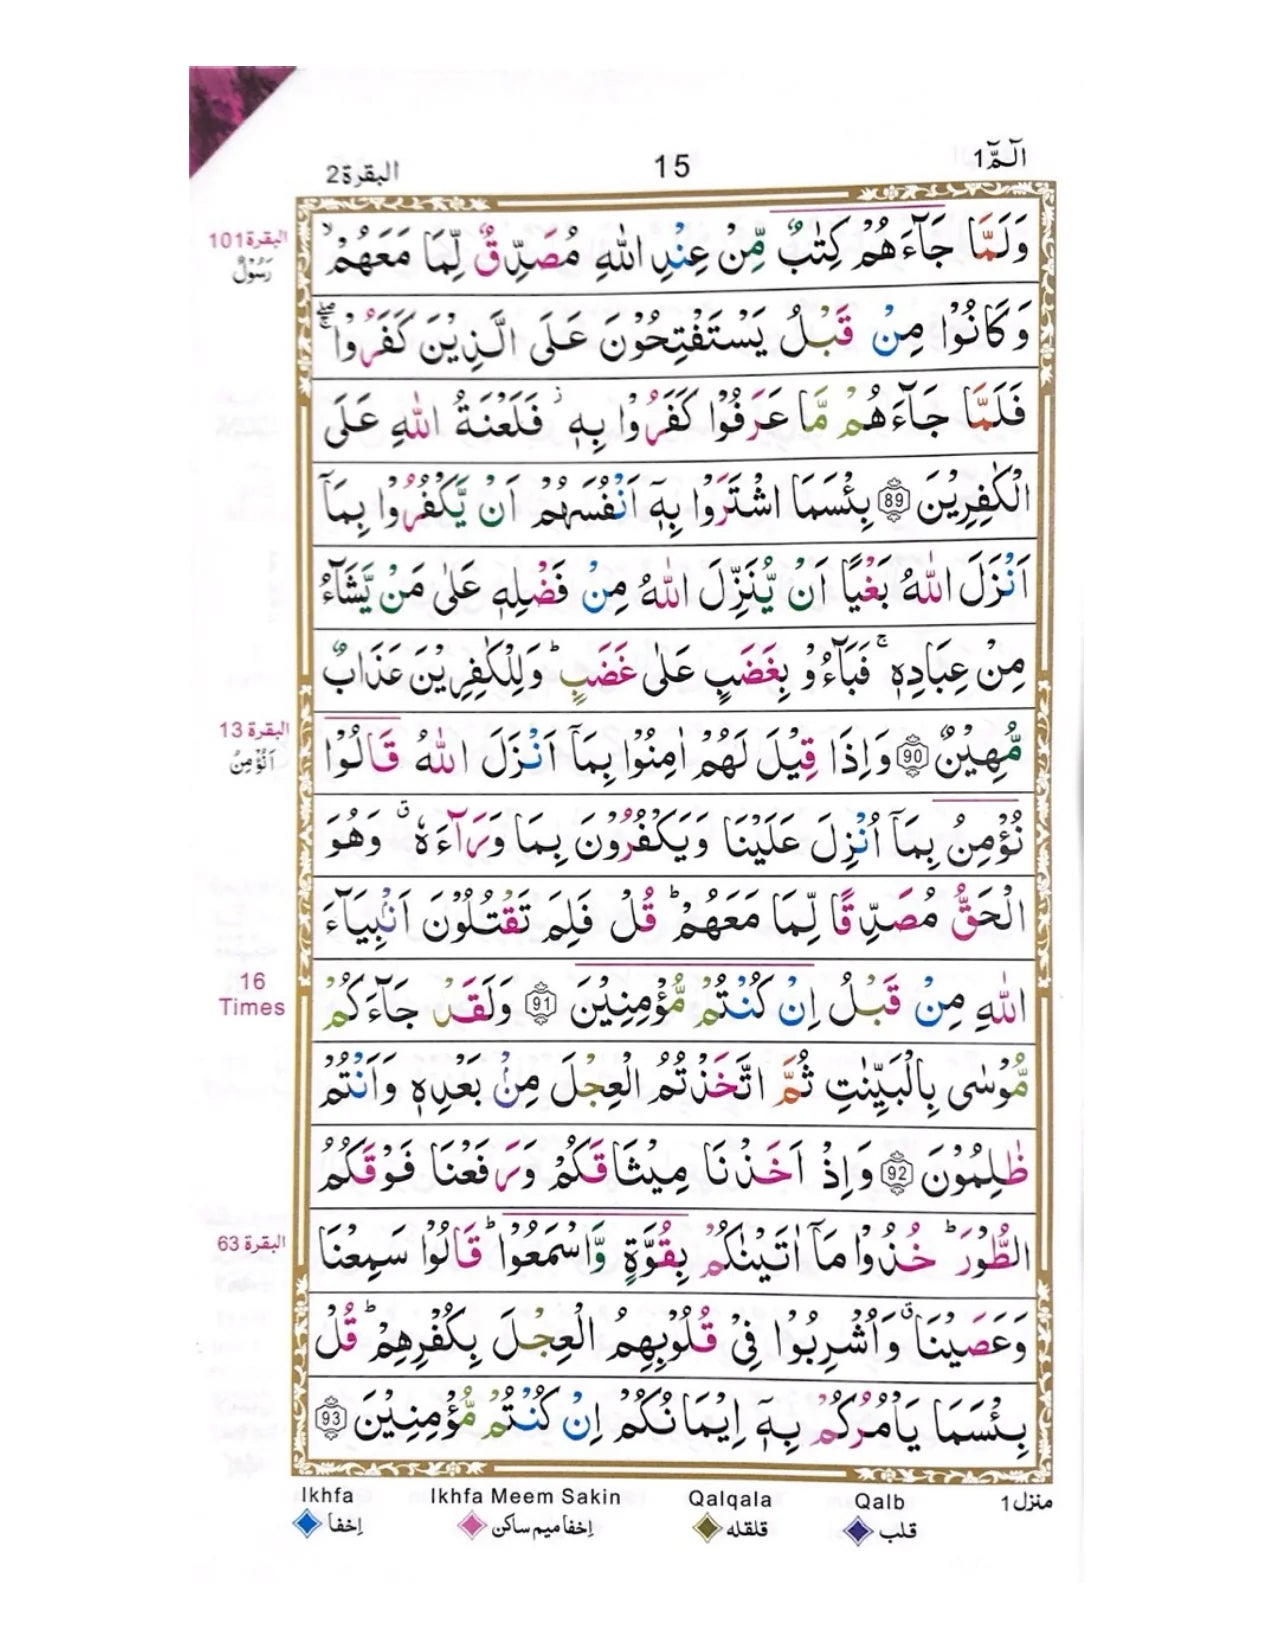 الٓمّٓ 1
15
البقرة 2
وَلَمَّا جَآءَهُمْ كِتٰبٌ مِّنْ عِنْدِ اللّٰهِ مُصَدِّقٌ لِّمَا مَعَهُمْ ۙ
البقرة 101
رَسُوْلٌ
وَكَانُوْا مِنْ قَبْلُ يَسْتَفْتِحُوْنَ عَلَى الَّذِيْنَ كَفَرُوْا ۚۖ
فَلَمَّا جَآءَهُمْ مَّا عَرَفُوْا كَفَرُوْا بِهٖ ۫ فَلَعْنَةُ اللّٰهِ عَلَى
الْكٰفِرِيْنَ 89 بِئْسَمَا اشْتَرَوْا بِهٖۤ اَنْفُسَهُمْ اَنْ يَّكْفُرُوْا بِمَاۤ
اَنْزَلَ اللّٰهُ بَغْيًا اَنْ يُّنَزِّلَ اللّٰهُ مِنْ فَضْلِهٖ عَلٰى مَنْ يَّشَآءُ
مِنْ عِبَادِهٖ ۚ فَبَآءُوْ بِغَضَبٍ عَلٰى غَضَبٍ ؕ وَلِلْكٰفِرِيْنَ عَذَابٌ
البقرة 13
اَنُؤْمِنُ
مُّهِيْنٌ 90 وَاِذَا قِيْلَ لَهُمْ اٰمِنُوْا بِمَاۤ اَنْزَلَ اللّٰهُ قَالُوْا
نُؤْمِنُ بِمَاۤ اُنْزِلَ عَلَيْنَا وَيَكْفُرُوْنَ بِمَا وَرَآءَهٗ ۗ وَهُوَ
الْحَقُّ مُصَدِّقًا لِّمَا مَعَهُمْ ؕ قُلْ فَلِمَ تَقْتُلُوْنَ اَنْۢبِيَآءَ
اللّٰهِ مِنْ قَبْلُ اِنْ كُنْتُمْ مُّؤْمِنِيْنَ 91 وَلَقَدْ جَآءَكُمْ
16
Times
مُّوْسٰى بِالْبَيِّنٰتِ ثُمَّ اتَّخَذْتُمُ الْعِجْلَ مِنْۢ بَعْدِهٖ وَاَنْتُمْ
ظٰلِمُوْنَ 92 وَاِذْ اَخَذْنَا مِيْثَاقَكُمْ وَرَفَعْنَا فَوْقَكُمُ
الطُّوْرَ ؕ خُذُوْا مَاۤ اٰتَيْنٰكُمْ بِقُوَّةٍ وَّاسْمَعُوْا ؕ قَالُوْا سَمِعْنَا
البقرة 63
وَعَصَيْنَا ۗ وَاُشْرِبُوْا فِيْ قُلُوْبِهِمُ الْعِجْلَ بِكُفْرِهِمْ ؕ قُلْ
بِئْسَمَا يَاْمُرُكُمْ بِهٖۤ اِيْمَانُكُمْ اِنْ كُنْتُمْ مُّؤْمِنِيْنَ 93
Ikhfa Ikhfa Meem Sakin Qalqala Qalb منزل 1
اِخفا اِخفا میم ساکن قلقله قلب